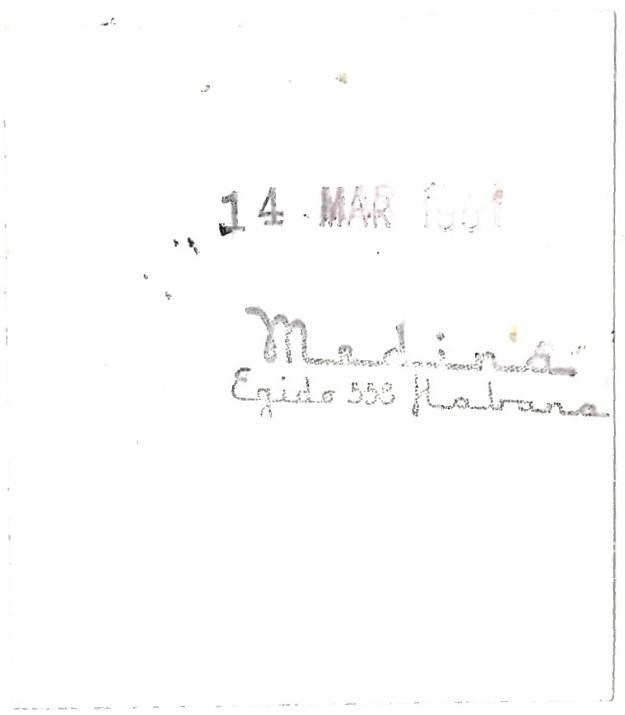 14 MAR
Medina
Egido 558 Habana